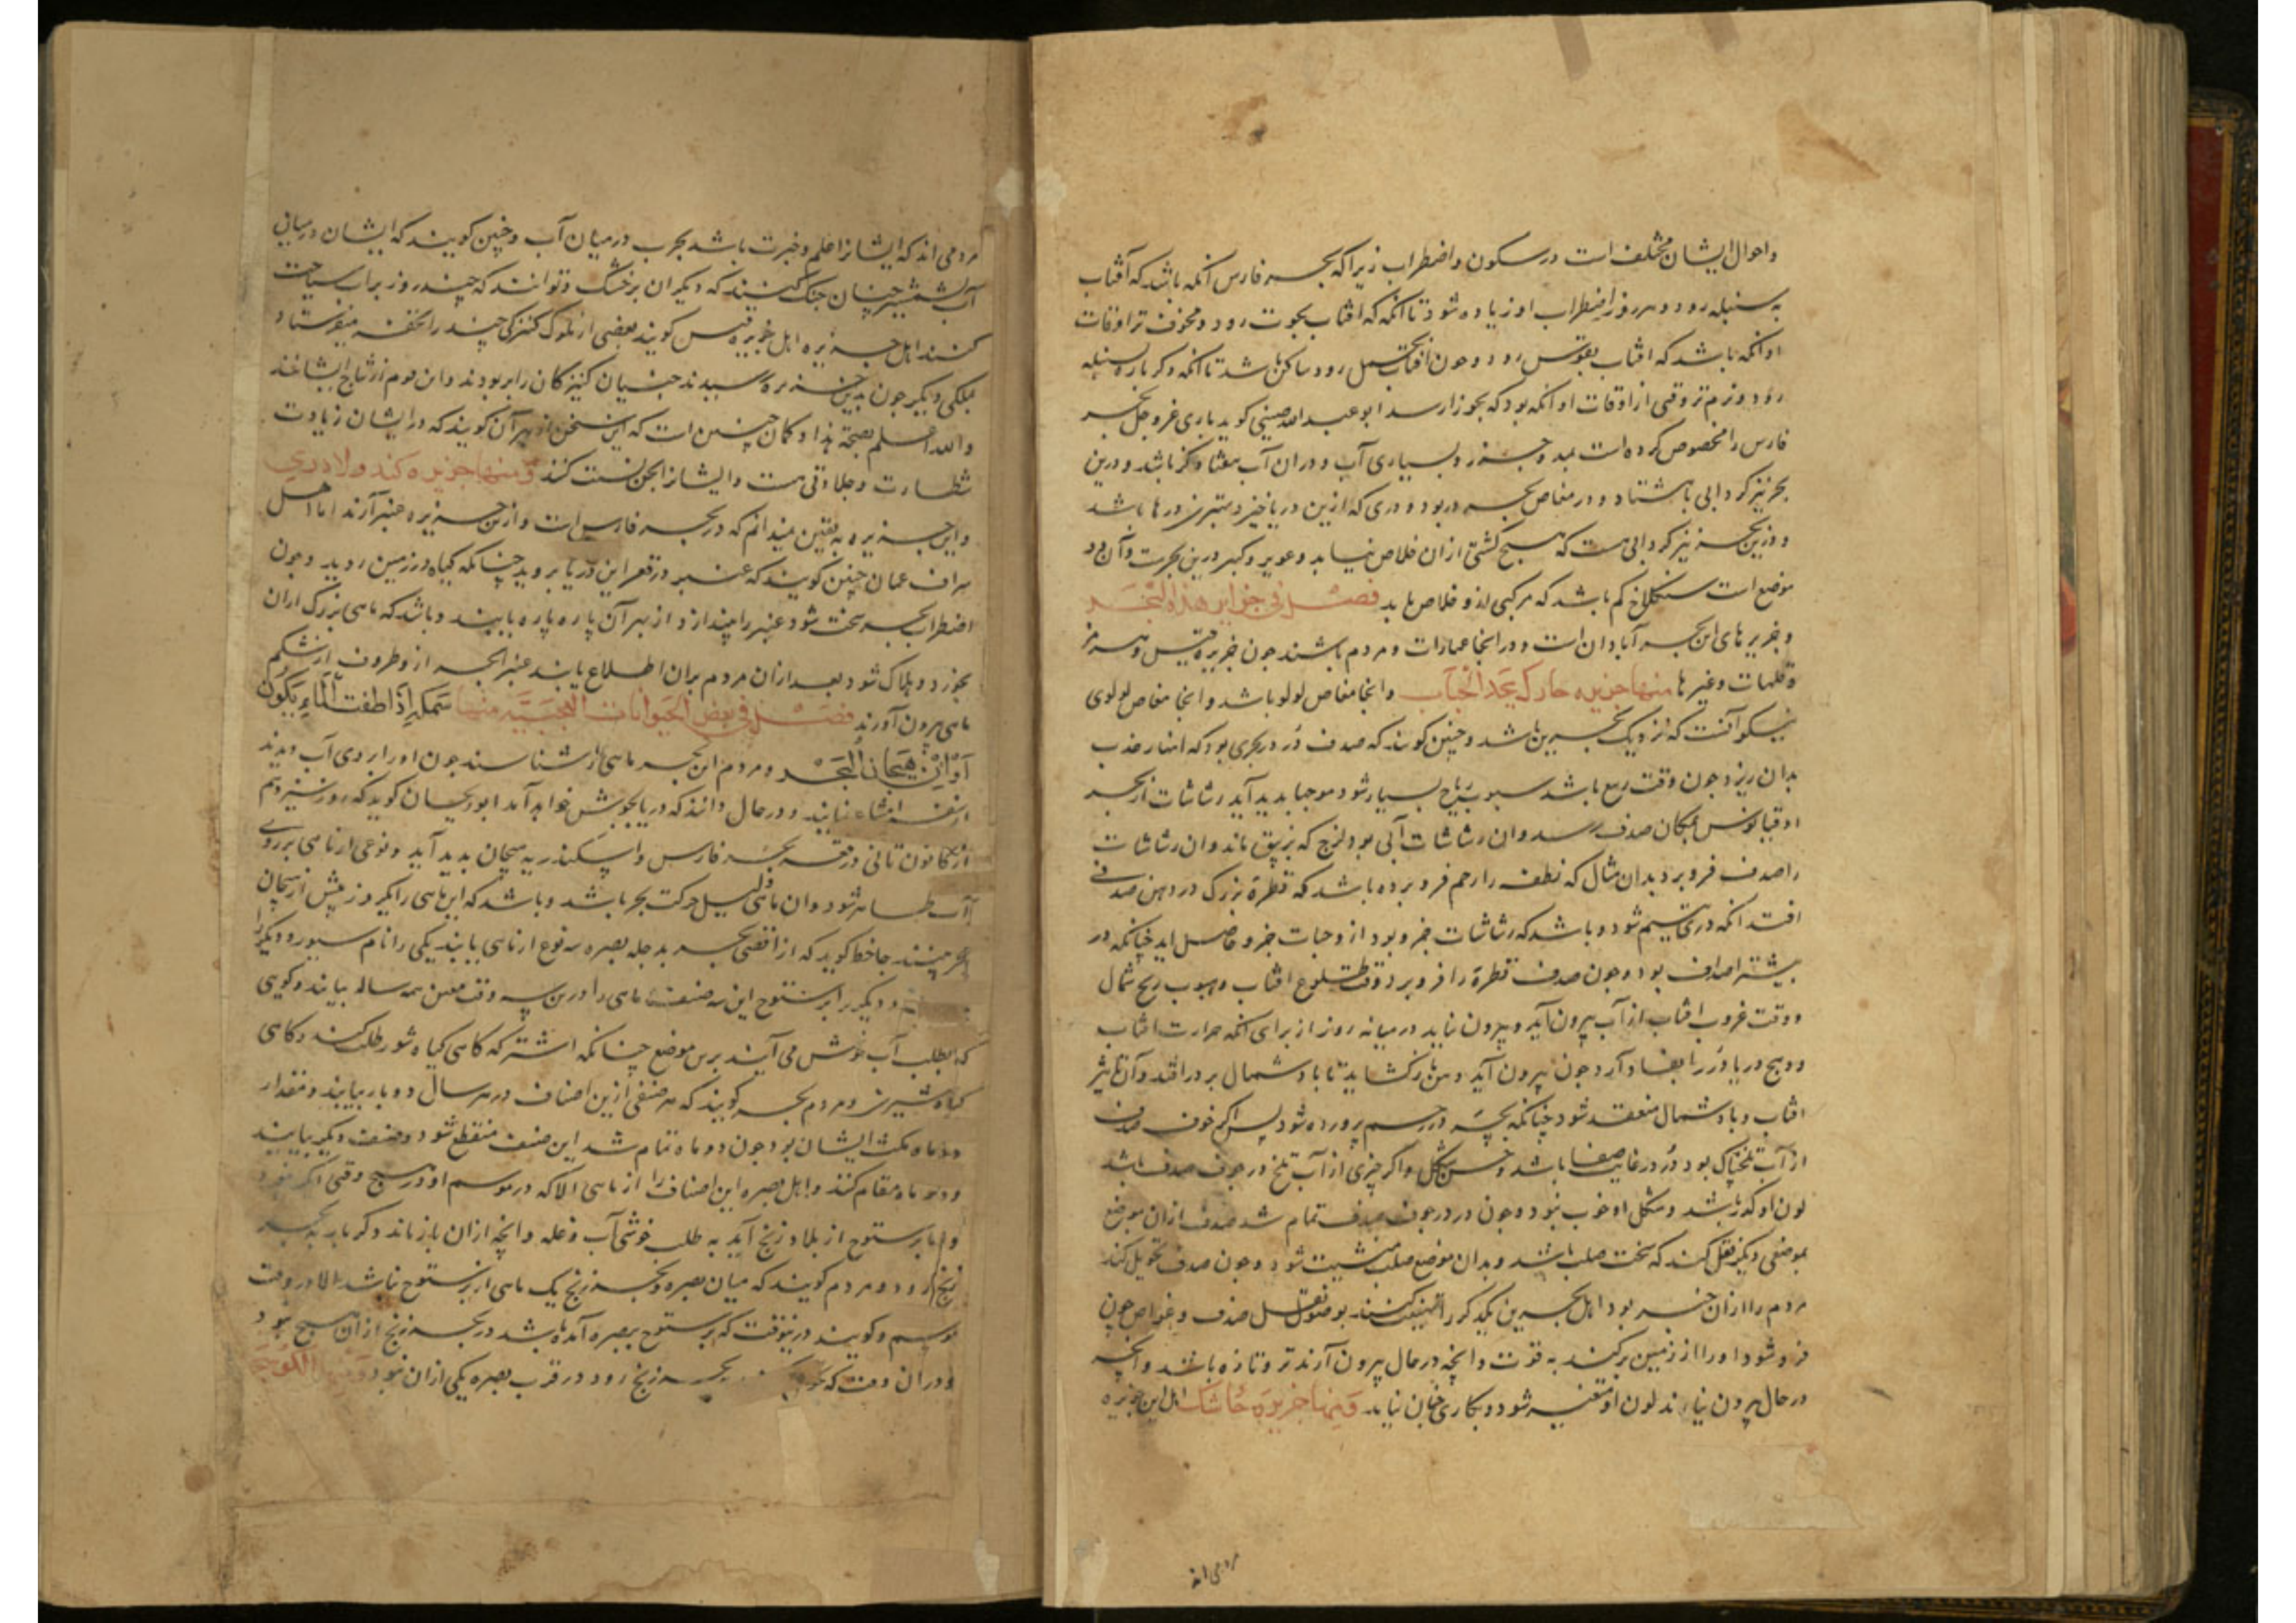 واحوال ایشان مختلف است در سکون واضطراب زیرا که بحر فارس آنکه باشد که آفتاب
به سنبله رود و هر روز اضطراب او زیاده شود تا آنکه که افتاب بحوت رود و مخوف تر اوقات
او آنکه باشد که افتاب بقوس رود وجون افتاب بحمل رود ساکن باشد تا آنکه دکر باره بسنبله
رود و نرم تر وقتی از اوقات او آنکه بود که بجوزا رسد ابو عبد الله صینی کوید باری عز وجل بحر
فارس را مخصوص کرده است بمد وجزر و بسیاری آب و دران آب هفتاد کز باشد ودرین
بحر نیز کردابی باشتاد و در مغاص بحر در بود ودری که ازین دریا خیزد بهترین درها باشد
و درین بحر نیز کردابی هست که هیچ کشتی ازان خلاص نیابد و عویر و کسیر درین بحرست وآن دو
موضع است سنکلاخ کم باشد که مرکبی ازو خلاص یابد فصل فی جزایر هذه البحر
و جزیرهای این بحر آبادان است ودر انجا عمارات و مردم باشند جون جزیره قیس و هرمز
و قلهات وغیرها منها جزیره خارک یحد الجناب وانجا مغاص لولو باشد وانجا مغاص لولوی
نیکو آنست که نزدیک بحرین باشد وچنین کویند که صدف در در بحری بود که انهار عذب
بدان ریزد جون وقت ربیع باشد هبوب ریاح بسیار شود موجها بدید آید رشاشات از بحر
اوقیانوس بمکان صدف رسد وان رشاشات آبی بود لزج که بزیبق ماند وان رشاشات
را صدف فرو برد بدان مثال که نطفه را رحم فرو برده باشد که قطرهٔ بزرک در دهن صدفی
افتد انکه دری یتیم شود و باشد که رشاشات خرد بود ازو حبات خرد حاصل اید چنانکه در
بیشتر اصداف بود و جون صدف قطره را فرو برد وقت طلوع افتاب و هبوب ریح شمال
ووقت غروب افتاب از آب بیرون آید و بیرون نیاید در میانه روز از برای آنکه حرارت افتاب
ووهج دریا در را بفساد آرد جون بیرون آید دهن باز کشاید تا باد شمال بر در افتد وآن تاثیر
افتاب و باد شمال منعقد شود چنانکه بچه در رحم پرورده شود پس اکر جوف صدف
از آب تلخ پاک بود در در غایت صفا باشد و حسن شکل واکر چیزی از آب تلخ در جوف صدف باشد
لون او کدر باشد و شکل او خوب نبود و جون در در جوف صدف تمام شد صدف ازان موضع
بموضعی دیکر نقل کند که سخت صلب باشد و بدان موضع صلب مثبت شود و جون صدف تحویل کند
مردم را ازان خبر بود اهل بحرین یکدیکر را تهنیت کنند بوصول صدف و غواص جون
فرو شود او را از زمین برکند به قوت وانچه در حال بیرون آرند تر و تازه باشد وانچه
در حال بیرون نیارند لون او متغیر شود و بکاری چنان نیاید ومنها جزیره خاشک اهل این جزیره
مردمی اند
مردمی اند که ایشانرا علم و خبرت باشد بحرب در میان آب و چنین کویند که ایشان در میان
آب بشمشیر چنان جنک کنند که دیکران بر خشک و توانند که چند روز بر آب سیاحت
کنند اهل جزیره اهل جزیره قیس کویند بعضی از ملوک کنیزکی چند را تحفه میفرستاد
بملکی دیکر جون بدین جزیره رسیدند جنیان کنیزکان را بربودند واین قوم از نتاج ایشانند
والله اعلم بصحة هذا و کمان چنین است که این سخن از بهر آن کویند که در ایشان زیادت
شطارت و جلادتی هست و ایشانرا بجن نسبت کنند ومنها جزیره کند ولادری
واین جزیره به یقین نمیدانم که در بحر فارس است وازین جزیره عنبر آرند اما اهل
سراف عمان چنین کویند که عنبر در قعر این دریا بروید چنانکه کیاه در زمین روید و جون
اضطراب بحر سخت شود عنبر را بیندازد از بهر آن پاره پاره یابند و باشد که ماهی بزرک ازان
بخورد و هلاک شود بعد ازان مردم بران اطلاع یابند عنبر البحر از وطروف از شکم
ماهی بیرون آورند فصل فی بعض الحیوانات العجیبه منها سمکه اذا طفت الماء یکون
آوان هیجان البحر ومردم این بحر ماهی را شناسند جون او را بر روی آب دیدند
ودر حال دانند که دریا بجوشش خواهد آمد ابوریحان کوید که روز سیزدهم
از کانون ثانی در قعر بحر فارس و اسکندریه هیجان بدید آید و نوعی از ماهی بر روی
آب ظاهر شود وان ماهی دلیل حرکت بحر باشد و باشد که این ماهی را یکروز پیش از هیجان
بینند جاحظ کوید که از اقصی بحر به دجله بصره سه نوع از ماهی یابند یکی را نام سبور و دیکر را
و دیکر را برستوج این سه صنف ماهی را درین سه وقت معین همه ساله بیایند و کویی
که بطلب آب خوش می آیند برین موضع چنانکه اشتر که کاهی کیاه شور طلب کند و کاهی
کیاه شیرین و مردم بحر کویند که هر صنفی ازین اصناف در هر سال دو بار بیایند و مقدار
دو ماه مکث ایشان بود جون دو ماه تمام شد این صنف منقطع شود و صنف دیکر بیایند
ودو ماه مقام کنند و اهل بصره این اصناف را از ماهی الا که در موسم او در هیچ وقتی
واما برستوج از بلاد زنج آید به طلب خوشی آب دجله وانچه ازان باز ماند دکر بار به بحر
زنج رود و مردم کویند که میان بصره و بحر زنج یک ماهی از برستوج نباشد الا در وقت
موسم و کویند درینوقت که برستوج ببصره آمده باشد در بحر زنج ازان هیچ نبود
ودران وقت که بحر زنج رود در قرب بصره یکی ازان نبود ومنها